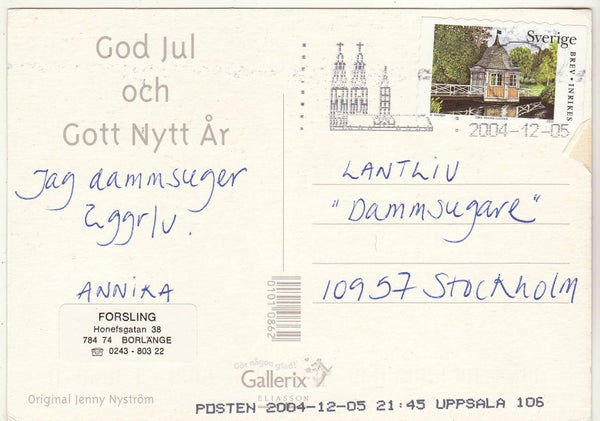 God Jul
och
Gott Nytt År
Jag dammsuger
2ggr/v.
ANNIKA
FORSLING
Honefsgatan 38
784 74 BORLÄNGE
☎ 0243 - 803 22
Original Jenny Nyström
0101 0862
Gör någon glad!
Gallerix
ELIASSON
Sverige
BREV • INRIKES
2004-12-05
LANTLIV
"Dammsugare"
10957 Stockholm
POSTEN 2004-12-05 21:45 UPPSALA 106